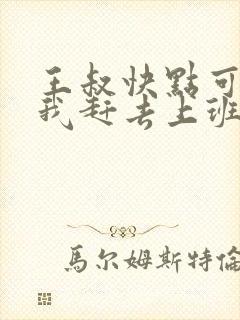 王叔快點可
我赶去上班
馬尔姆斯特倫